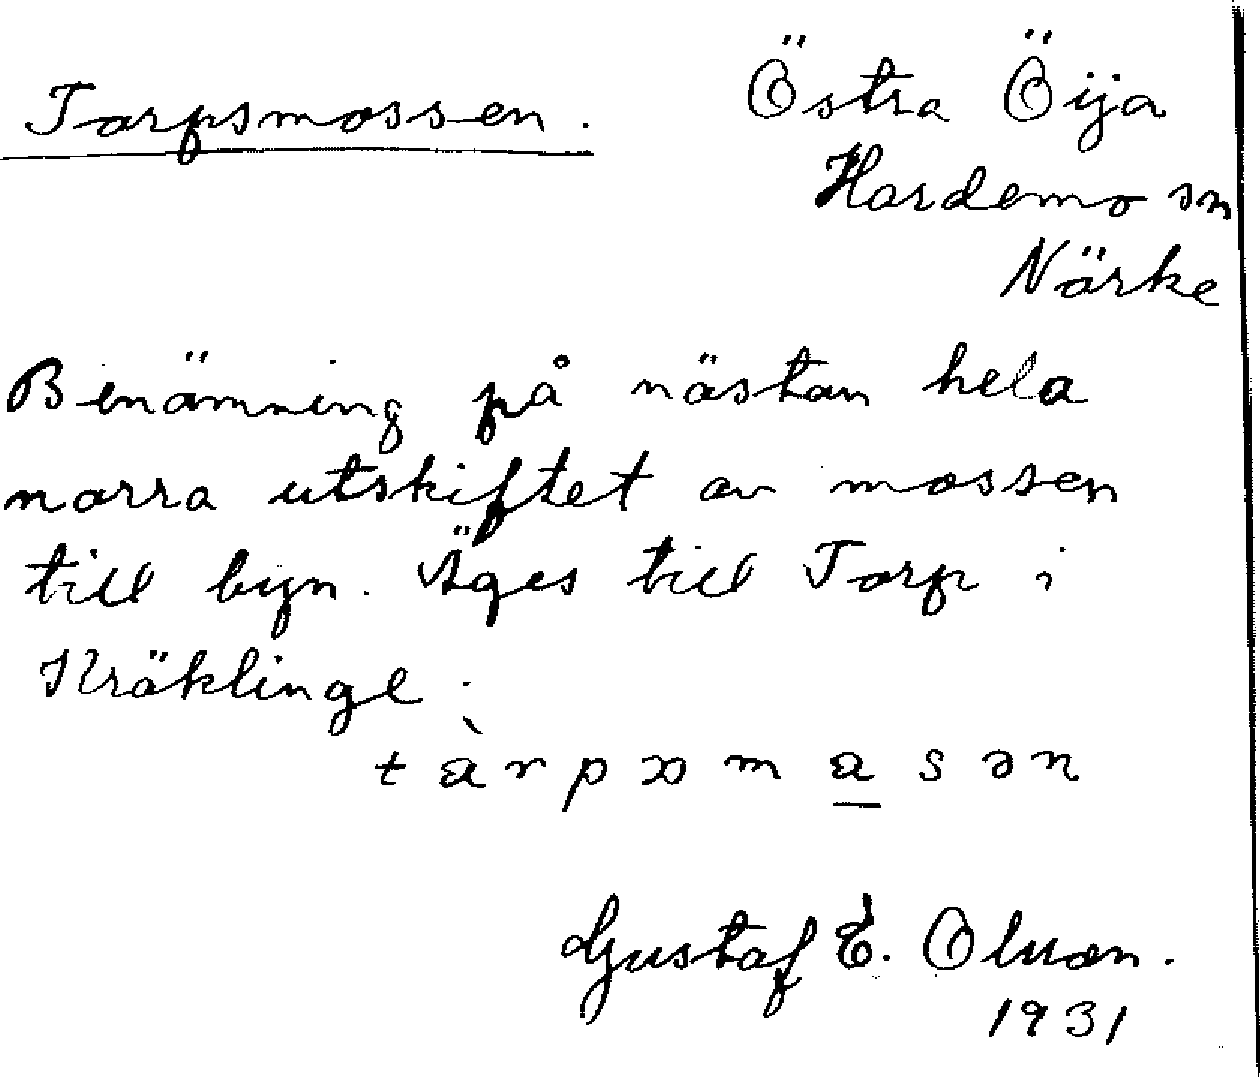 Torpsmossen.
Östra Öija
Hardemo sn
Närke
Benämning på nästan hela
norra utskiftet av mossen
till byn. Äges till Torp i
Kräklinge.
Gustaf E. Olsson.
1931